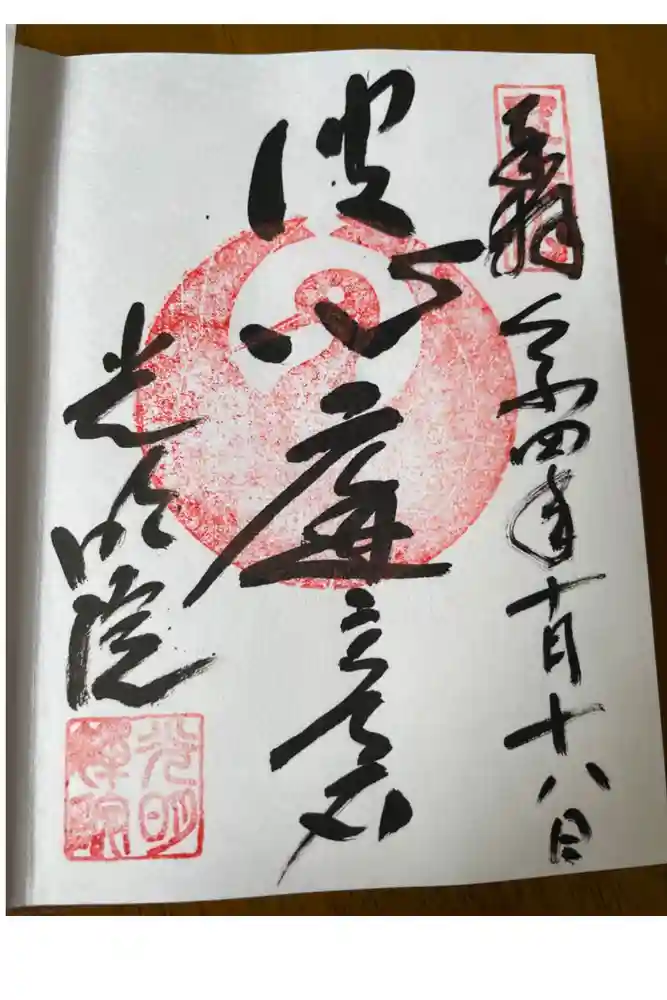 奉拝 令和四年十月十八日
波心庭
光明院
光明禅院